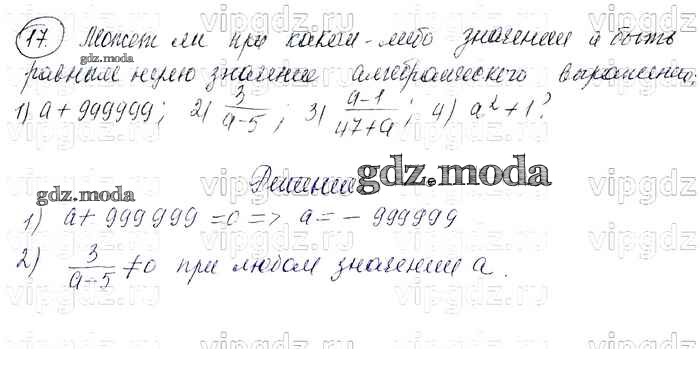 17. Может ли при каком-либо значении а быть
gdz.moda
равным нулю значение алгебраического выражения:
1) a + 999999; 2) 3/(a-5); 3) (a-1)/(47+a); 4) a² + 1?
Решение
gdz.moda
gdz.moda
1) a + 999 999 = 0 => a = - 999999
2) 3/(a-5) ≠ 0 при любом значении a.
vipgdz.com